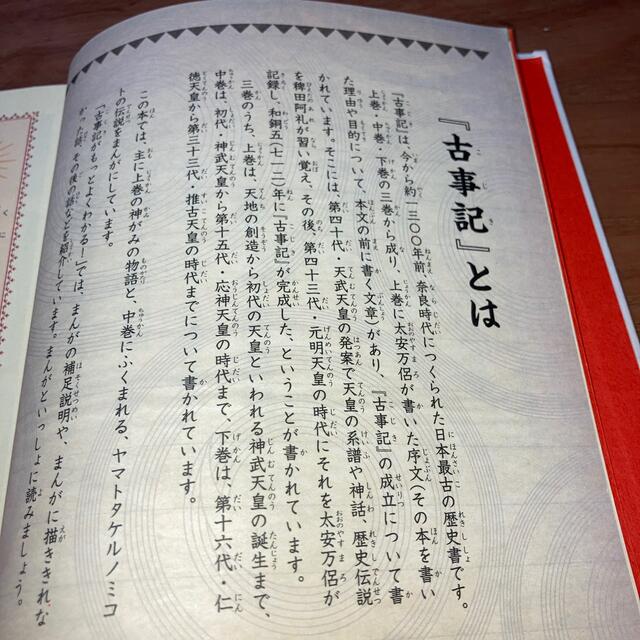 『古事記』とは
『古事記』は、今から約一三〇〇年前、奈良時代につくられた日本最古の歴史書です。
上巻・中巻・下巻の三巻から成り、上巻に太安万侶が書いた序文(その本を書い
た理由や目的について、本文の前に書く文章)があり、『古事記』の成立について書
かれています。そこには、第四十代・天武天皇の発案で天皇の系譜や神話、歴史伝説
を稗田阿礼が習い覚え、その後、第四十三代・元明天皇の時代にそれを太安万侶が
記録し、和銅五(七一二)年に『古事記』が完成した、ということが書かれています。
三巻のうち、上巻は、天地の創造から初代の天皇といわれる神武天皇の誕生まで、
中巻は、初代・神武天皇から第十五代・応神天皇の時代まで、下巻は、第十六代・仁
徳天皇から第三十三代・推古天皇の時代までについて書かれています。
この本では、主に上巻の神がみの物語と、中巻にふくまれる、ヤマトタケルノミコ
トの伝説をまんがにしています。
「古事記がもっとよくわかる!」では、まんがの補足説明や、まんがに描ききれな
かった話、その後の話などを紹介しています。まんがといっしょに読みましょう。